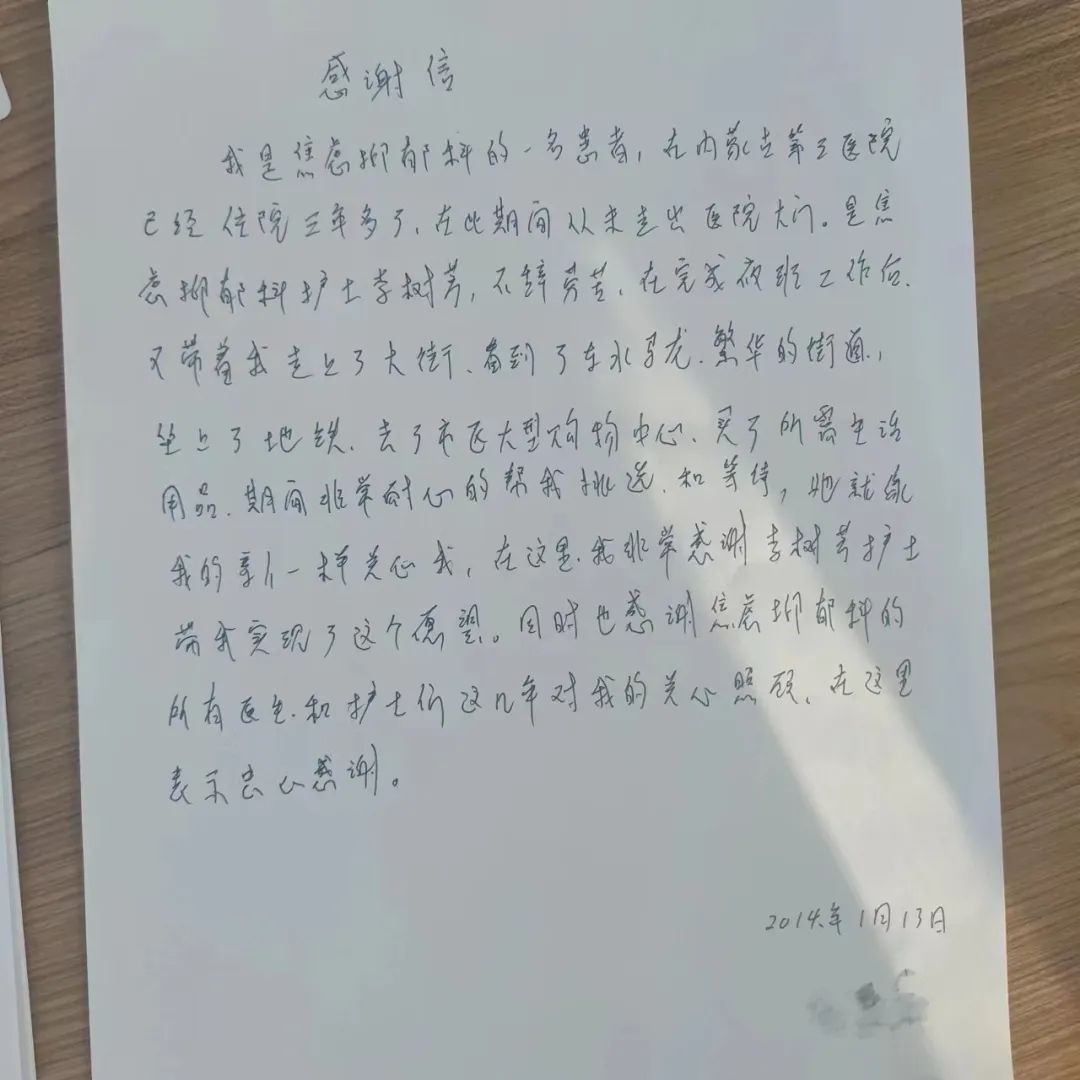 感谢信
我是焦虑抑郁科的一名患者，在内蒙古第三医院
已经住院三年多了，在此期间从未走出医院大门。是焦
虑抑郁科护士李树芳，不辞劳苦，在完成夜班工作后，
又带着我走上了大街、看到了车水马龙、繁华的街道，
坐上了地铁、去了市区大型购物中心、买了所需生活
用品、期间非常耐心的帮我挑选、和等待，她就像
我的亲人一样关心我，在这里，我非常感谢李树芳护士
带我实现了这个愿望。同时也感谢焦虑抑郁科的
所有医生、和护士们这几年对我的关心照顾、在这里
表示衷心感谢。
2014年1月13日